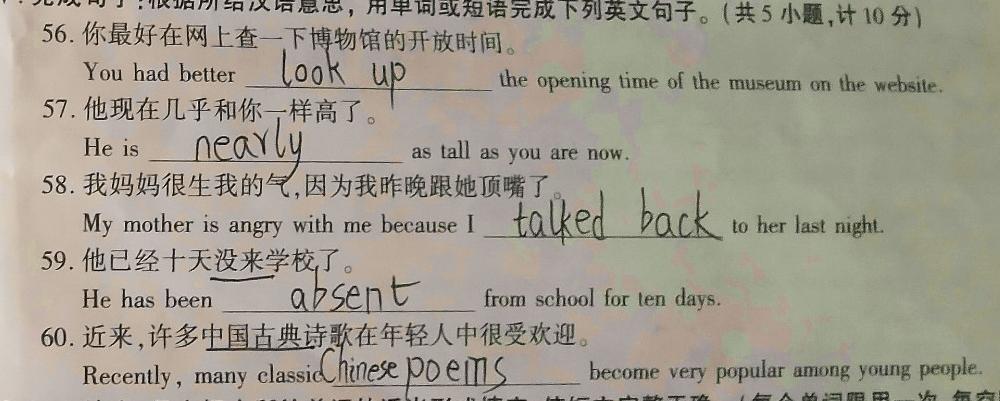 完成句子:根据所给汉语意思，用单词或短语完成下列英文句子。(共5小题,计10分)
56. 你最好在网上查一下博物馆的开放时间。
You had better look up the opening time of the museum on the website.
57. 他现在几乎和你一样高了。
He is nearly as tall as you are now.
58. 我妈妈很生我的气,因为我昨晚跟她顶嘴了。
My mother is angry with me because I talked back to her last night.
59. 他已经十天没来学校了。
He has been absent from school for ten days.
60. 近来,许多中国古典诗歌在年轻人中很受欢迎。
Recently, many classic Chinese poems become very popular among young people.